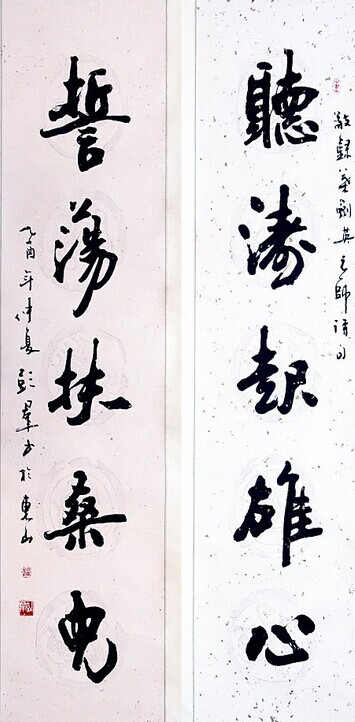 敬録葉劍英元帥詩句
聽濤起雄心
誓蕩扶桑兒
乙酉年仲夏彭羣書於東山